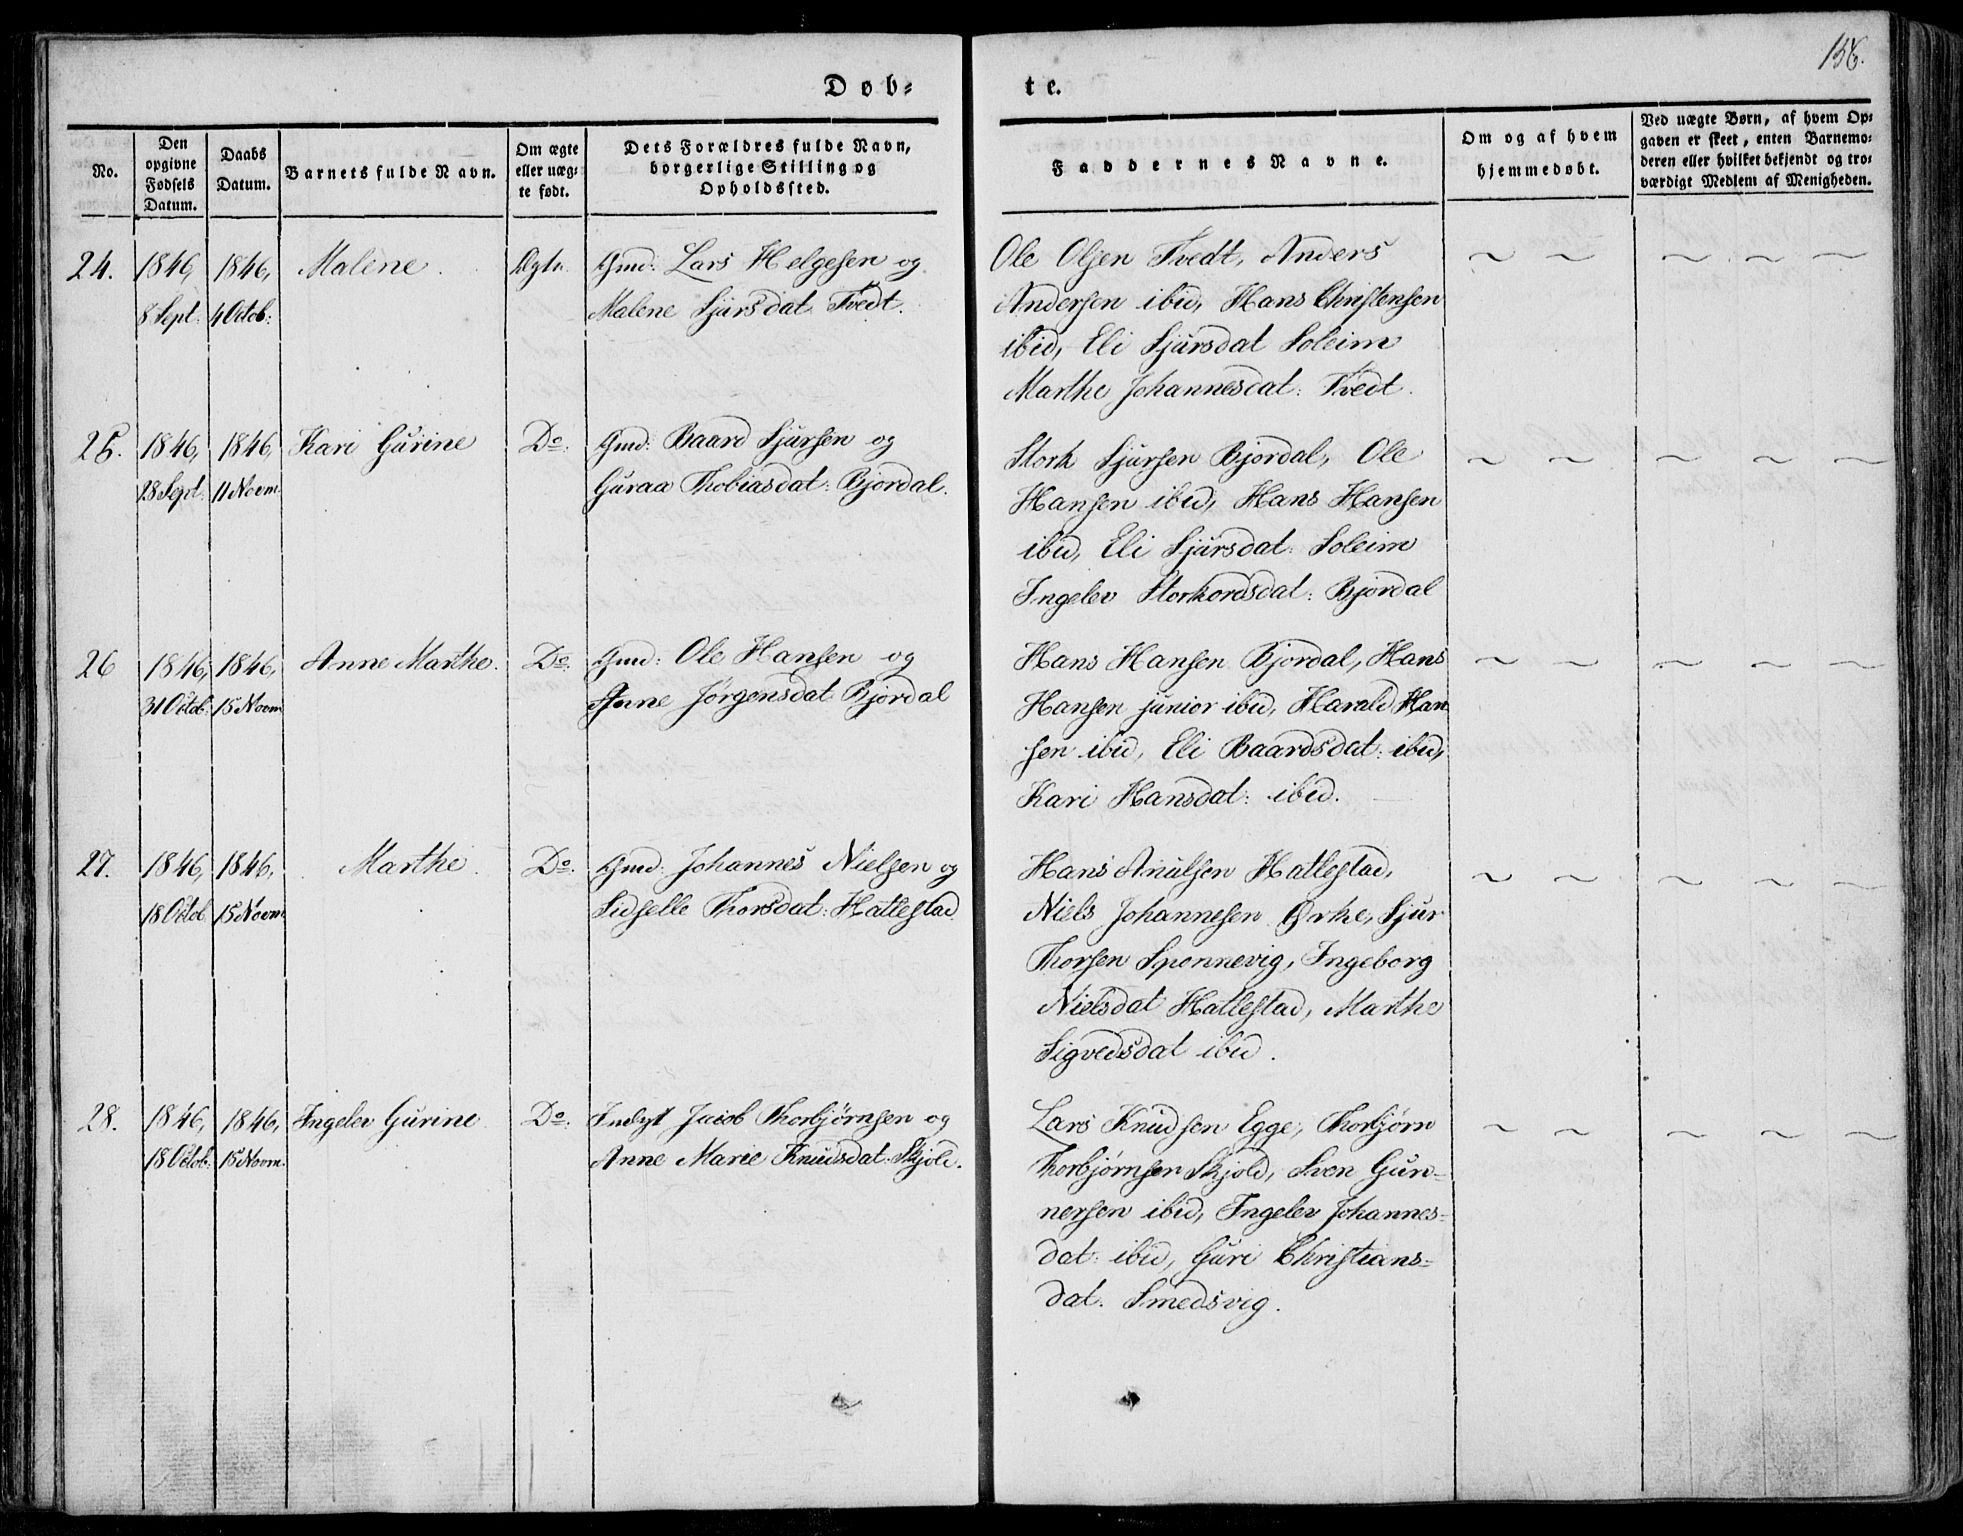 156.
Døb=
te.
No.
Den opgivne Fødsels Datum.
Daabs Datum.
Barnets fulde Navn.
Om ægte eller uæg= te født.
Dets Forældres fulde Navn, borgerlige Stilling og Opholdssted.
Faddernes Navne.
Om og af hvem hjemmedøbt.
Ved uægte Børn, af hvem Op= gaven er skeet, enten Barnemo= deren eller hvilket bekjendt og tro= værdigt Medlem af Menigheden.
24. 1846, 1846, Malene. Ægte. Gmd: Lars Helgesen og
8 Sept: 4 Octob: Malene Sjursdat Tvedt.
Ole Olsen Tvedt, Anders
Andersen ibid, Hans Christensen
ibid, Eli Sjursdat Soleim
Marthe Johannesdat: Tvedt.
25. 1846, 1846, Kari Gurine Do. Gmd: Baard Sjursen og
28 Sept: 11 Novm. Guraa Thobiasdat: Bjordal.
Stork Sjursen Bjordal, Ole
Hansen ibid, Hans Hansen
ibid, Eli Sjursdat: Soleim
Ingelev Storkordsdat: Bjordal
26 1846, 1846, Anne Marthe. Do. Gmd: Ole Hansen og
31 Octob: 15 Novm Anne Jørgensdat Bjordal
Hans Hansen Bjordal, Hans
Hansen junior ibid, Harald Han
sen ibid, Eli Baardsdat: ibid,
Kari Hansdat: ibid.
27. 1846, 1846, Marthe. Do. Gmd: Johannes Nielsen og
18 Octob 15 Novm Sidselle Thorsdat: Hattestad
Hans Anulsen Hattestad,
Niels Johannesen Ørke, Sjur
Thorsen Sponnevig, Ingeborg
Nielsdat Hattestad, Marthe
Sigvedsdat ibid.
28. 1846, 1846, Ingelev Gurine Do. Indsyt Jacob Thorbjørnsen og
18 Octob: 15 Novm. Anne Marie Knudsdat: Skjold.
Lars Knudsen Egge, Thorbjørn
Thorbjørnsen Skjold, Sven Gun=
nersen ibid, Ingelev Johannes=
dat: ibid, Guri Christians=
dat: Smedsvig.